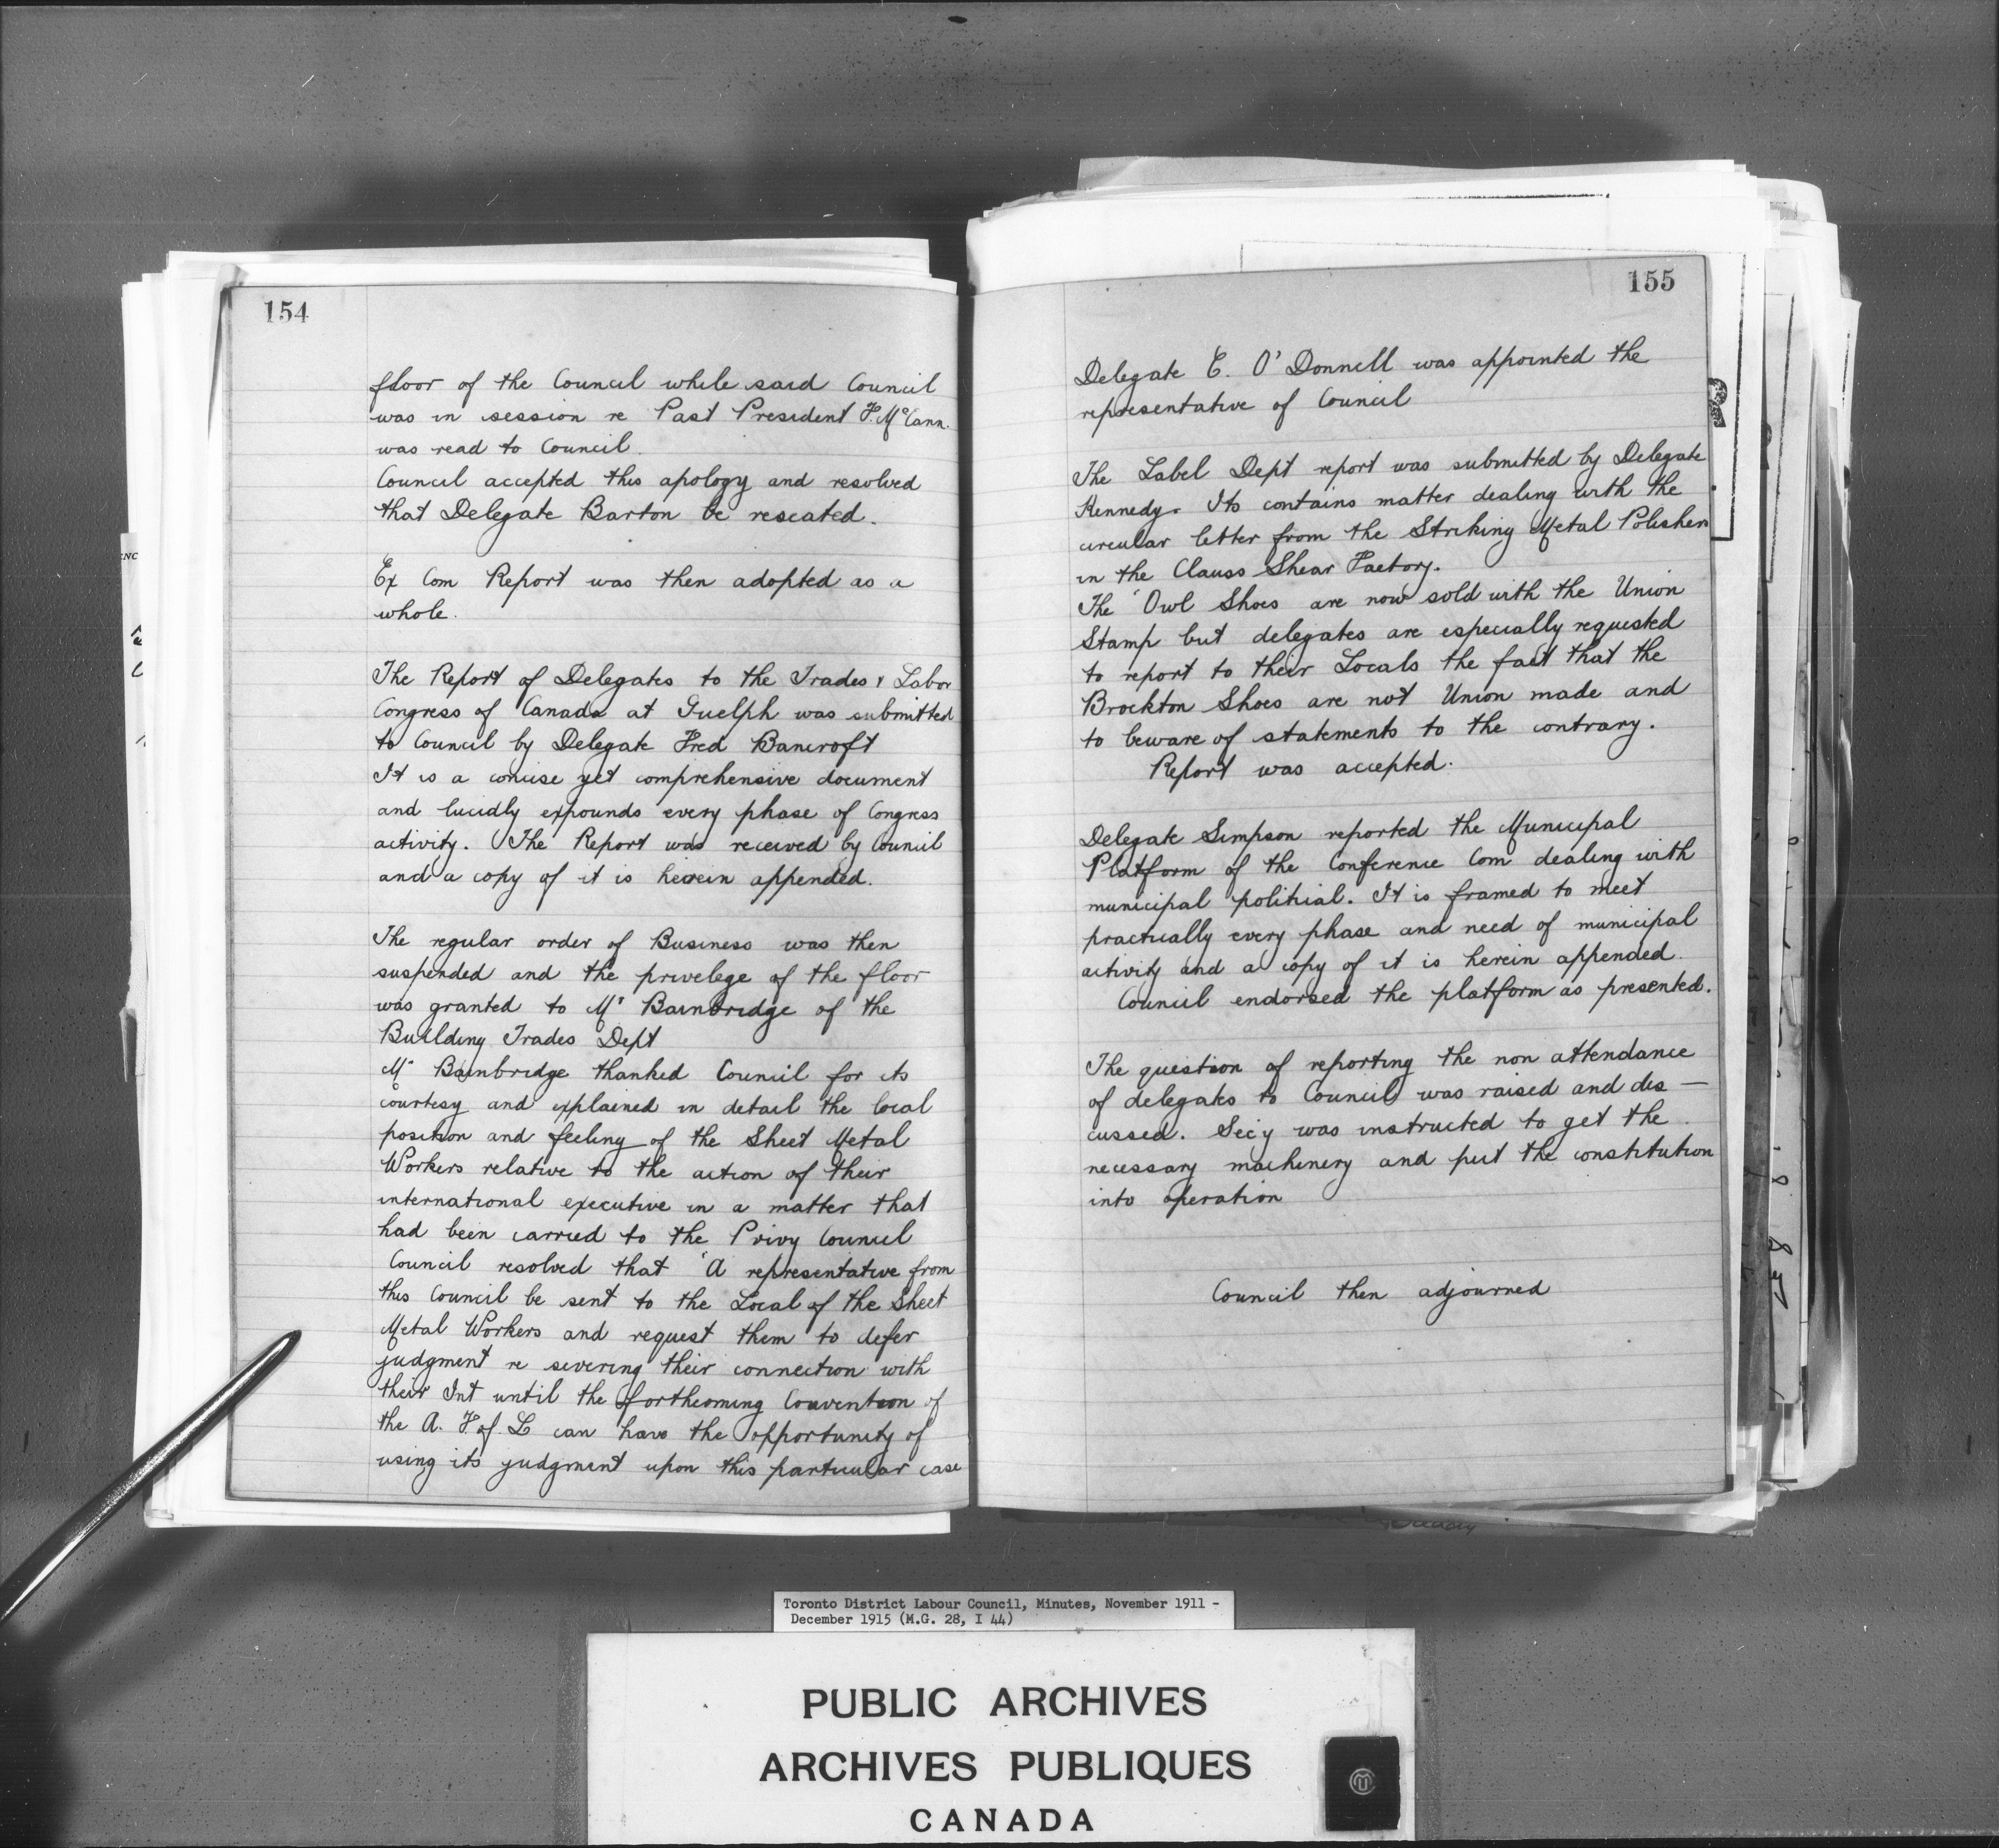 154
floor of the Council while said Council
was in session re Past President F. McCann.
was read to Council.
Council accepted this apology and resolved
that Delegate Barton be reseated.
Ex Com Report was then adopted as a
whole.
The Report of Delegates to the Trades & Labor
Congress of Canada at Guelph was submitted
to Council by Delegate Fred Bancroft
It is a concise yet comprehensive document
and lucidly expounds every phase of Congress
activity. The Report was received by Council
and a copy of it is herein appended.
The regular order of Business was then
suspended and the privelege of the floor
was granted to Mr Bainbridge of the
Building Trades Dept
Mr Bainbridge thanked Council for its
courtesy and explained in detail the local
position and feeling of the Sheet Metal
Workers relative to the action of their
international executive in a matter that
had been carried to the Privy Council
Council resolved that 'A representative from
this Council be sent to the Local of the Sheet
Metal Workers and request them to defer
judgment re severing their connection with
their Int until the forthcoming Convention of
the A. F. of. L can have the opportunity of
using its judgment upon this particular case
155
Delegate E. O'Donnell was appointed the
representative of Council
The Label Dept report was submitted by Delegate
Kennedy. Its contains matter dealing with the
circular letter from the Striking Metal Polishers
in the Clauss Shear Factory.
The 'Owl Shoes are now sold with the Union
Stamp but delegates are especially requested
to report to their Locals the fact that the
Brockton Shoes are not Union made and
to beware of statements to the contrary.
Report was accepted.
Delegate Simpson reported the Municipal
Platform of the Conference Com dealing with
municipal political. It is framed to meet
practically every phase and need of municipal
activity and a copy of it is herein appended.
Council endorsed the platform as presented.
The question of reporting the non attendance
of delegates to Council was raised and dis—
cussed. Secy was instructed to get the
necessary machinery and put the constitution
into operation
Council then adjourned
Toronto District Labour Council, Minutes, November 1911 -
December 1915 (M.G. 28, I 44)
PUBLIC ARCHIVES
ARCHIVES PUBLIQUES
CANADA